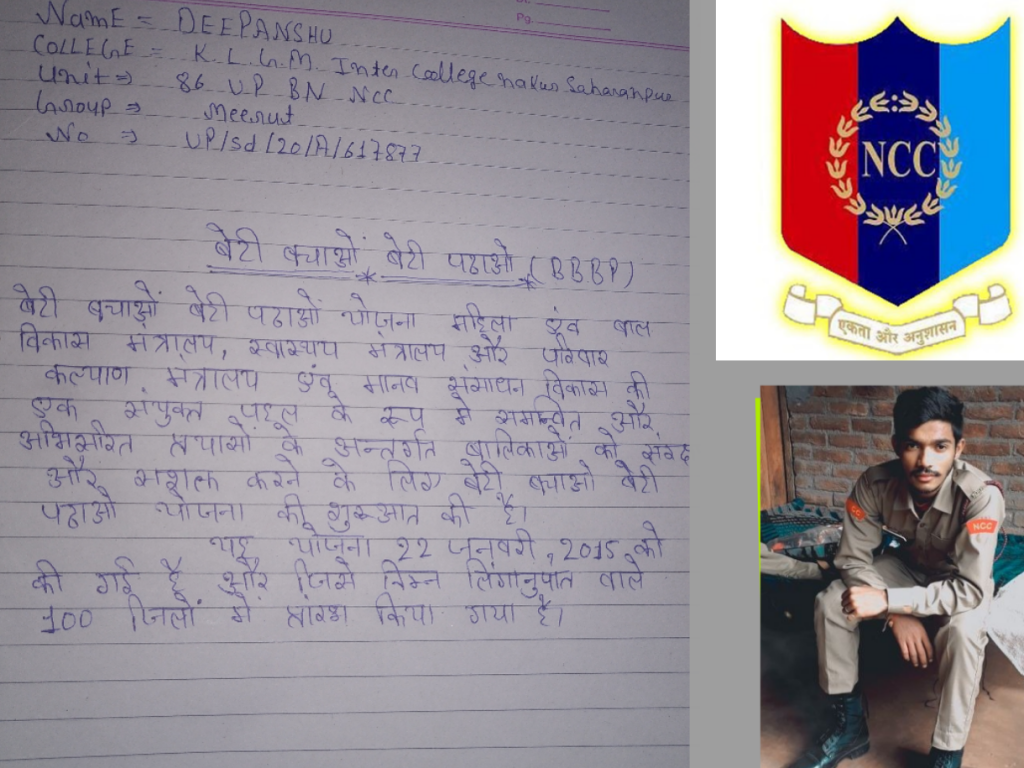 Pg.
Name = DEEPANSHU
COLLEGE = K L G.M. Inter College nakur Saharanpur
Unit ⇒ 86 UP BN NCC
Group ⇒ Meerut
No ⇒ UP/Sd/20/A/617877
बेटी बचाओं बेटी पढाओ (BBBP)
बेटी बचाओं बेटी पढाओं योजना महिला एंव बाल
विकास मंत्रालय, स्वास्थय मंत्रालय और परिवार
कल्याण मंत्रालय एंव मानव संसाधन विकास की
एक संयुक्त पहल के रूप में समन्वित और
अभिसरित प्रयासों के अन्तर्गत बालिकाओं को
और सशक्त करने के लिए बेटी बचाओ बेटी
पढाओ योजना की शुरूआत की है।
यह योजना 22 जनवरी, 2015 को
की गई है और जिसे निम्न लिंगानुपात वाले
100 जिलों में प्रारंभ किया गया है।
NCC
एकता और अनुशासन
NCC